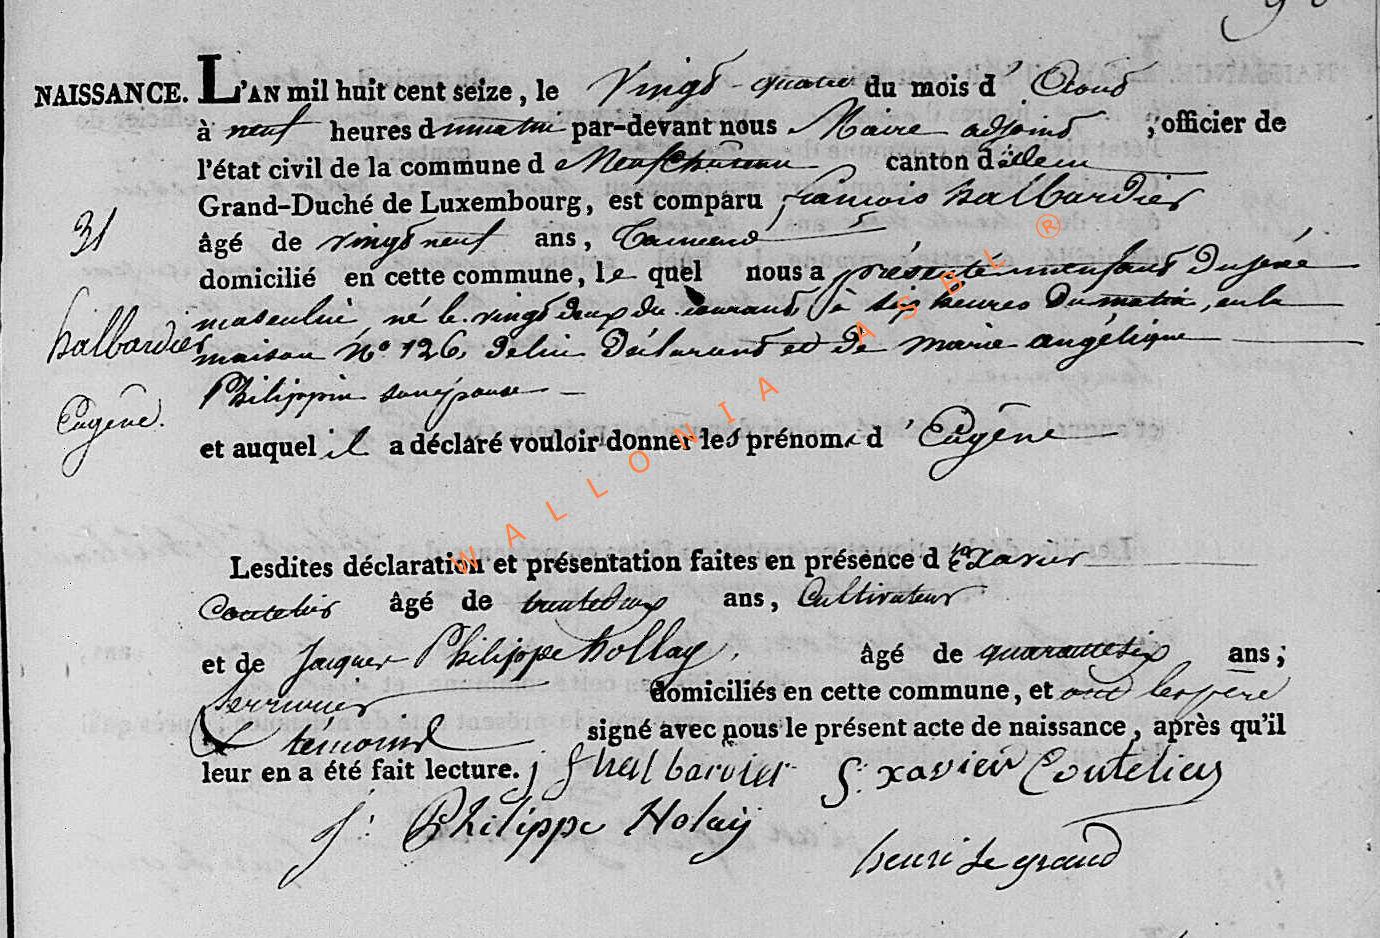 NAISSANCE. L'AN mil huit cent seize, le Vingt-quatre du mois d'Aout
à neuf heures du matin par-devant nous Maire adjoint, officier de
l'état civil de la commune de Neufchateau canton d'idem
Grand-Duché de Luxembourg, est comparu françois halbardier
31
âgé de vingt neuf ans, Tanneur
domicilié en cette commune, le quel nous a présenté un enfant du sexe
masculin, né le vingt deux du courant à six heures du matin, en la
halbardier
maison No 126, de lui déclarant et de marie angélique
Philippin son épouse
Eugêne.
et auquel il a déclaré vouloir donner les prénoms d'Eugêne
Lesdites déclaration et présentation faites en présence de Xavier
Coutelier âgé de trente deux ans, Cultivateur
et de Jacques Philippe hollay, âgé de quarante six ans;
serrurier domiciliés en cette commune, et ont les père
et témoins signé avec nous le présent acte de naissance, après qu'il
leur en a été fait lecture. j f halbardier f: xavier Coutelier
j: Philippe Holaÿ
henri Le grand
WALLONIA ASBL ®